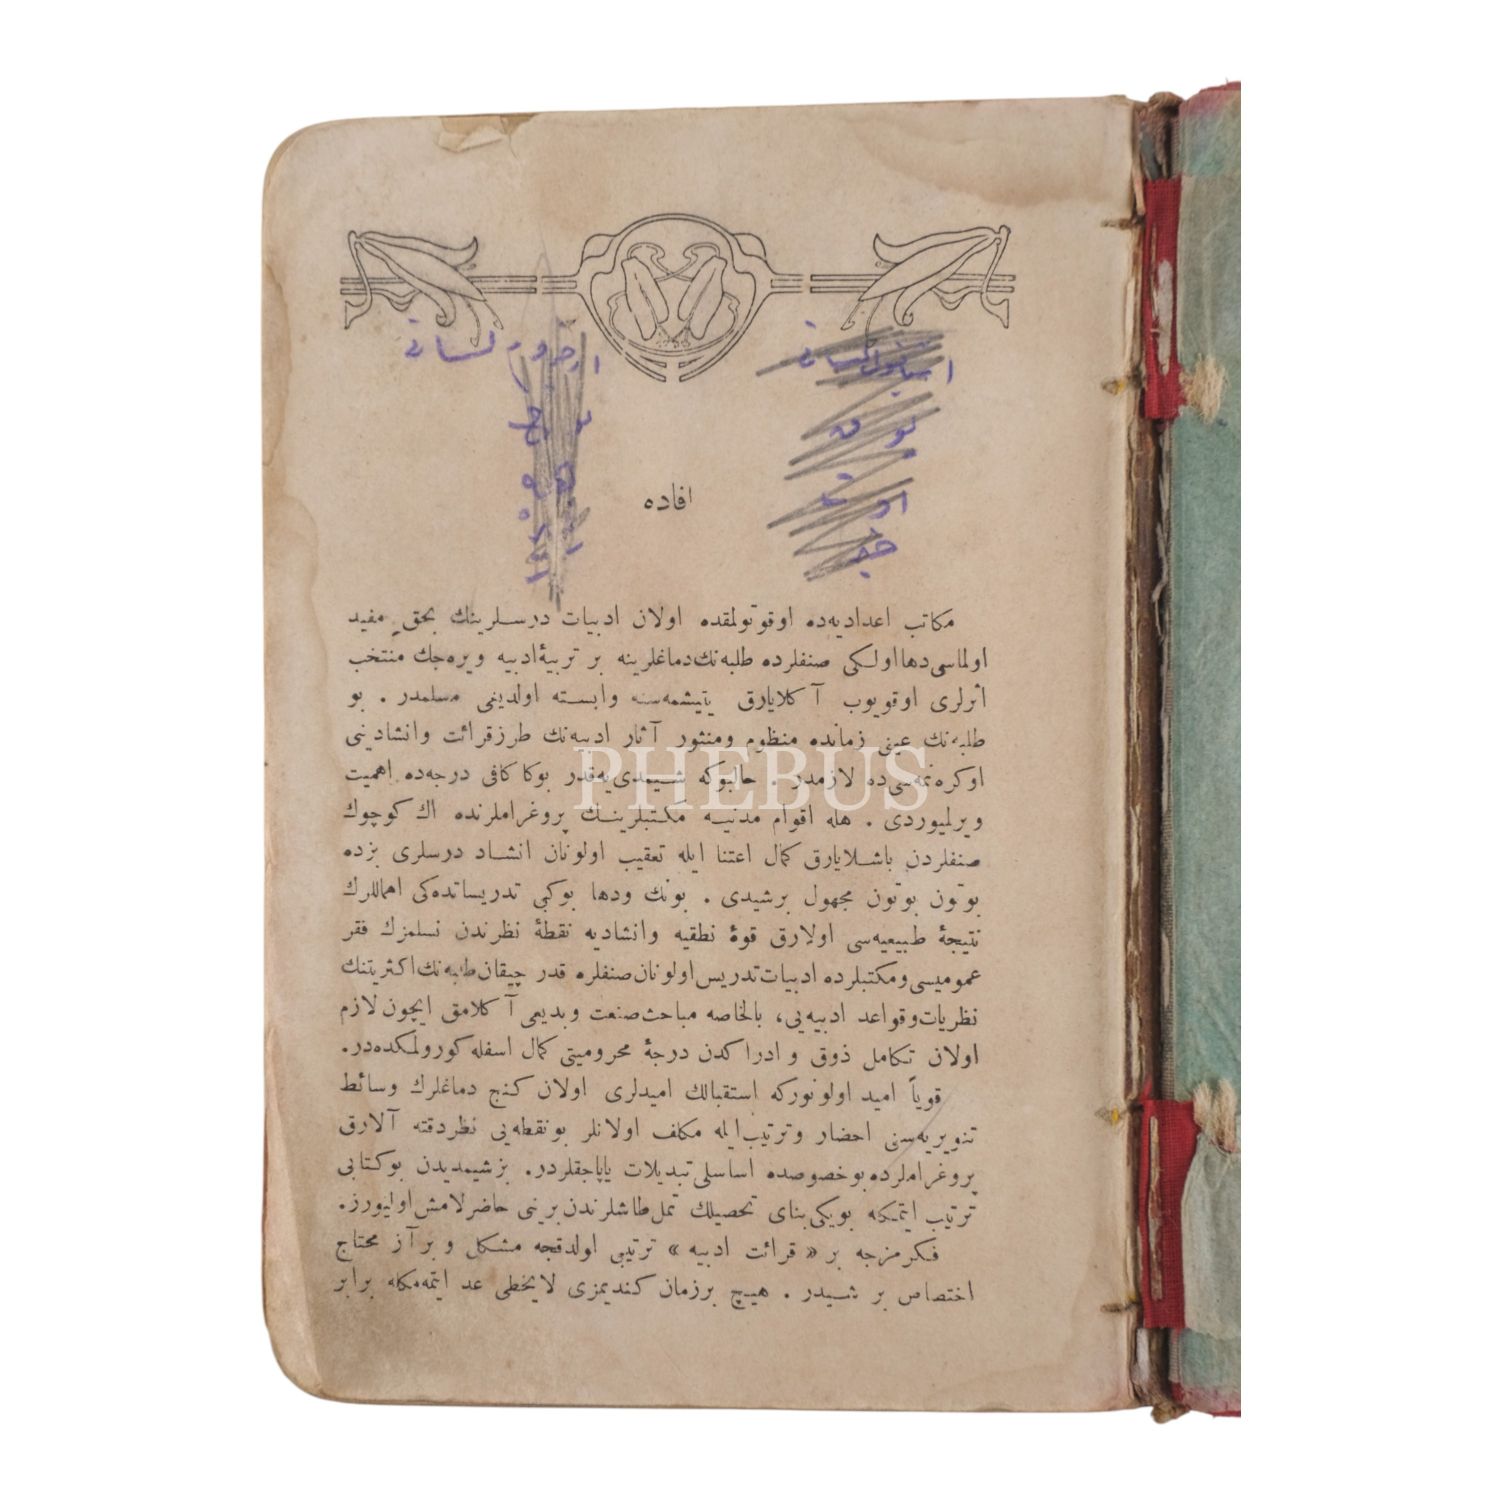 افاده
مكاتب اعداديه‌ده اوقوتولمقده اولان ادبيات درسلرينك بحق مفيد
اولماسی دها اولكی صنفلرده طلبه‌نك دماغلرينه بر تربيهٔ ادبيه ويره‌جك منتخب
اثرلری اوقويوب آكلايارق يتيشمه‌سنه وابسته اولديغی مسلمدر . بو
طلبه‌نك عينی زمانده منظوم ومنثور آثار ادبيه‌نك طرز قرائت وانشادينی
اوكره‌نمه‌سی‌ده لازمدر . حالبوكه شيمدی‌يه‌قدر بوكا كافی درجه‌ده اهميت
ويرلميوردی . هله اقوام مدنيه مكتبلرينك پروغراملرنده اك كوچوك
صنفلردن باشلايارق كمال اعتنا ايله تعقيب اولونان انشاد درسلری بزده
بوتون بوتون مجهول برشيدی . بونك ودها بوكبی تدريساتده‌كی اهماللرك
نتيجهٔ طبيعيه‌سی اولارق قوهٔ نطقيه وانشاديه نقطهٔ نظرندن نسلمزك فقر
عموميسی ومكتبلرده ادبيات تدريس اولونان صنفلره قدر چيقان طلبه‌نك اكثريتنك
نظريات وقواعد ادبيه‌يی، بالخاصه مباحث صنعت وبديعی آكلامق ايچون لازم
اولان تكامل ذوق و ادراكدن درجهٔ محروميتی كمال اسفله كورولمكده‌در.
قوياً اميد اولونوركه استقبالك اميدلری اولان كنج دماغلرك وسائط
تنويريه‌سنی احضار وترتيب ايله مكلف اولانلر بونقطه‌يی نظردقته آلارق
پروغراملرده بوخصوصده اساسلی تبديلات ياپاجقلردر. بز شيمديدن بوكتابی
ترتيب ايتمكله بويكی بنای تحصيلك تمل طاشلرندن برينی حاضرلامش اوليورز.
فكرمزجه بر « قرائت ادبيه » ترتيبی اولدقجه مشكل و بر آز محتاج
اختصاص بر شيدر . هيچ برزمان كنديمزی لايخطی عد ايتمه‌مكله برابر
PHEBUS